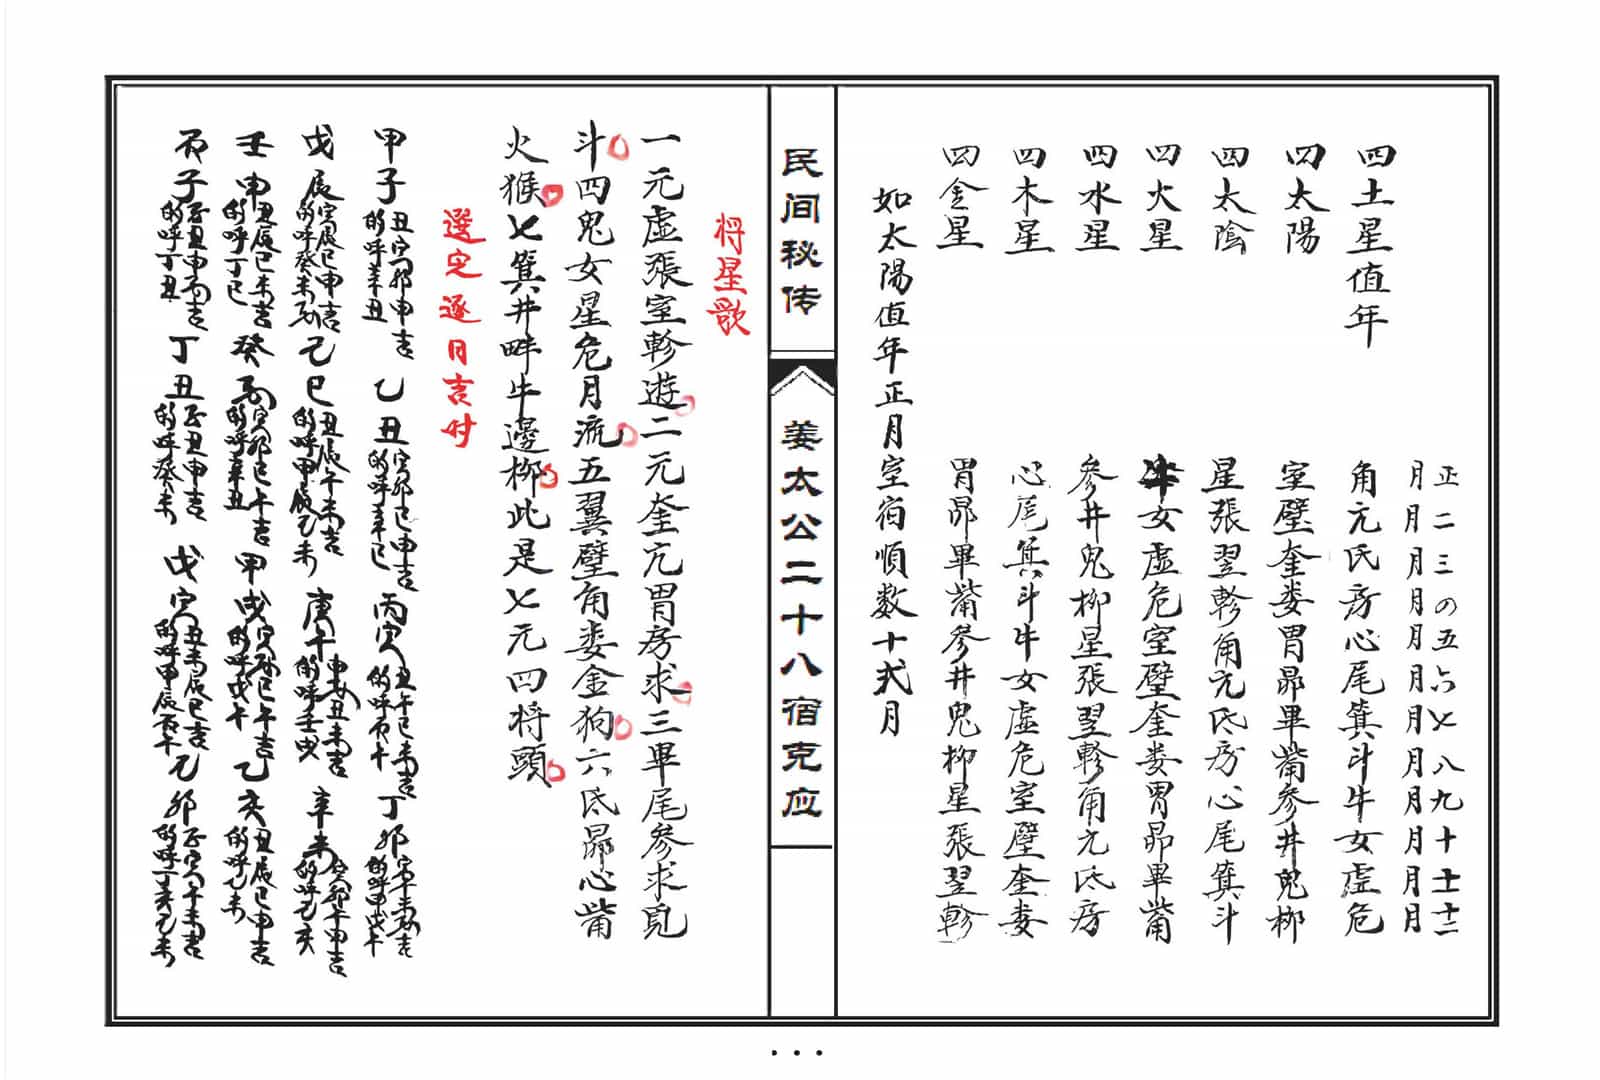 正二三の五六七八九十十一十二
月月月月月月月月月月月月
四土星值年 角亢氐房心尾箕斗牛女虛危
四太陽 室壁奎娄胃昴畢觜參井鬼柳
四太陰 星張翌軫角亢氐房心尾箕斗
四火星 牛女虛危室壁奎娄胃昴畢觜
四水星 參井鬼柳星張翌軫角亢氐房
四木星 心尾箕斗牛女虛危室壁奎娄
四金星 胃昴畢觜參井鬼柳星張翌軫
如太陽值年正月室宿順数十弍月
民间秘传
姜太公二十八宿克应
将星歌
一元虛張室軫遊二元奎亢胃房求三畢尾參求覓
斗四鬼女星危月流五翼壁角娄金狗六氐昴心觜
火猴七箕井畔牛邊柳此是七元四将頭
選定逐日吉时
甲子 丑寅卯申吉 的呼辛丑 乙丑 寅卯巳申吉 的呼辛巳 丙寅 丑午巳未吉 的呼丙午 丁卯 寅午未吉 的呼甲戌午
戊辰 寅辰巳申吉 的呼癸未 己巳 丑辰午未吉 的呼甲辰乙未 庚午 申丑未吉 的呼壬戌 辛未 寅卯午申吉 的呼乙亥
壬申 丑辰巳未吉 的呼丁巳 癸 寅卯巳午吉 的呼辛丑 甲戌 寅卯巳午吉 的呼戊午 乙亥 丑辰巳申吉 的呼乙未
丙子 子丑申酉吉 的呼丁丑 丁丑 子丑申吉 的呼癸未 戊寅 丑未辰巳吉 的呼甲辰丙午 己卯 子寅午未吉 的呼丁亥乙未